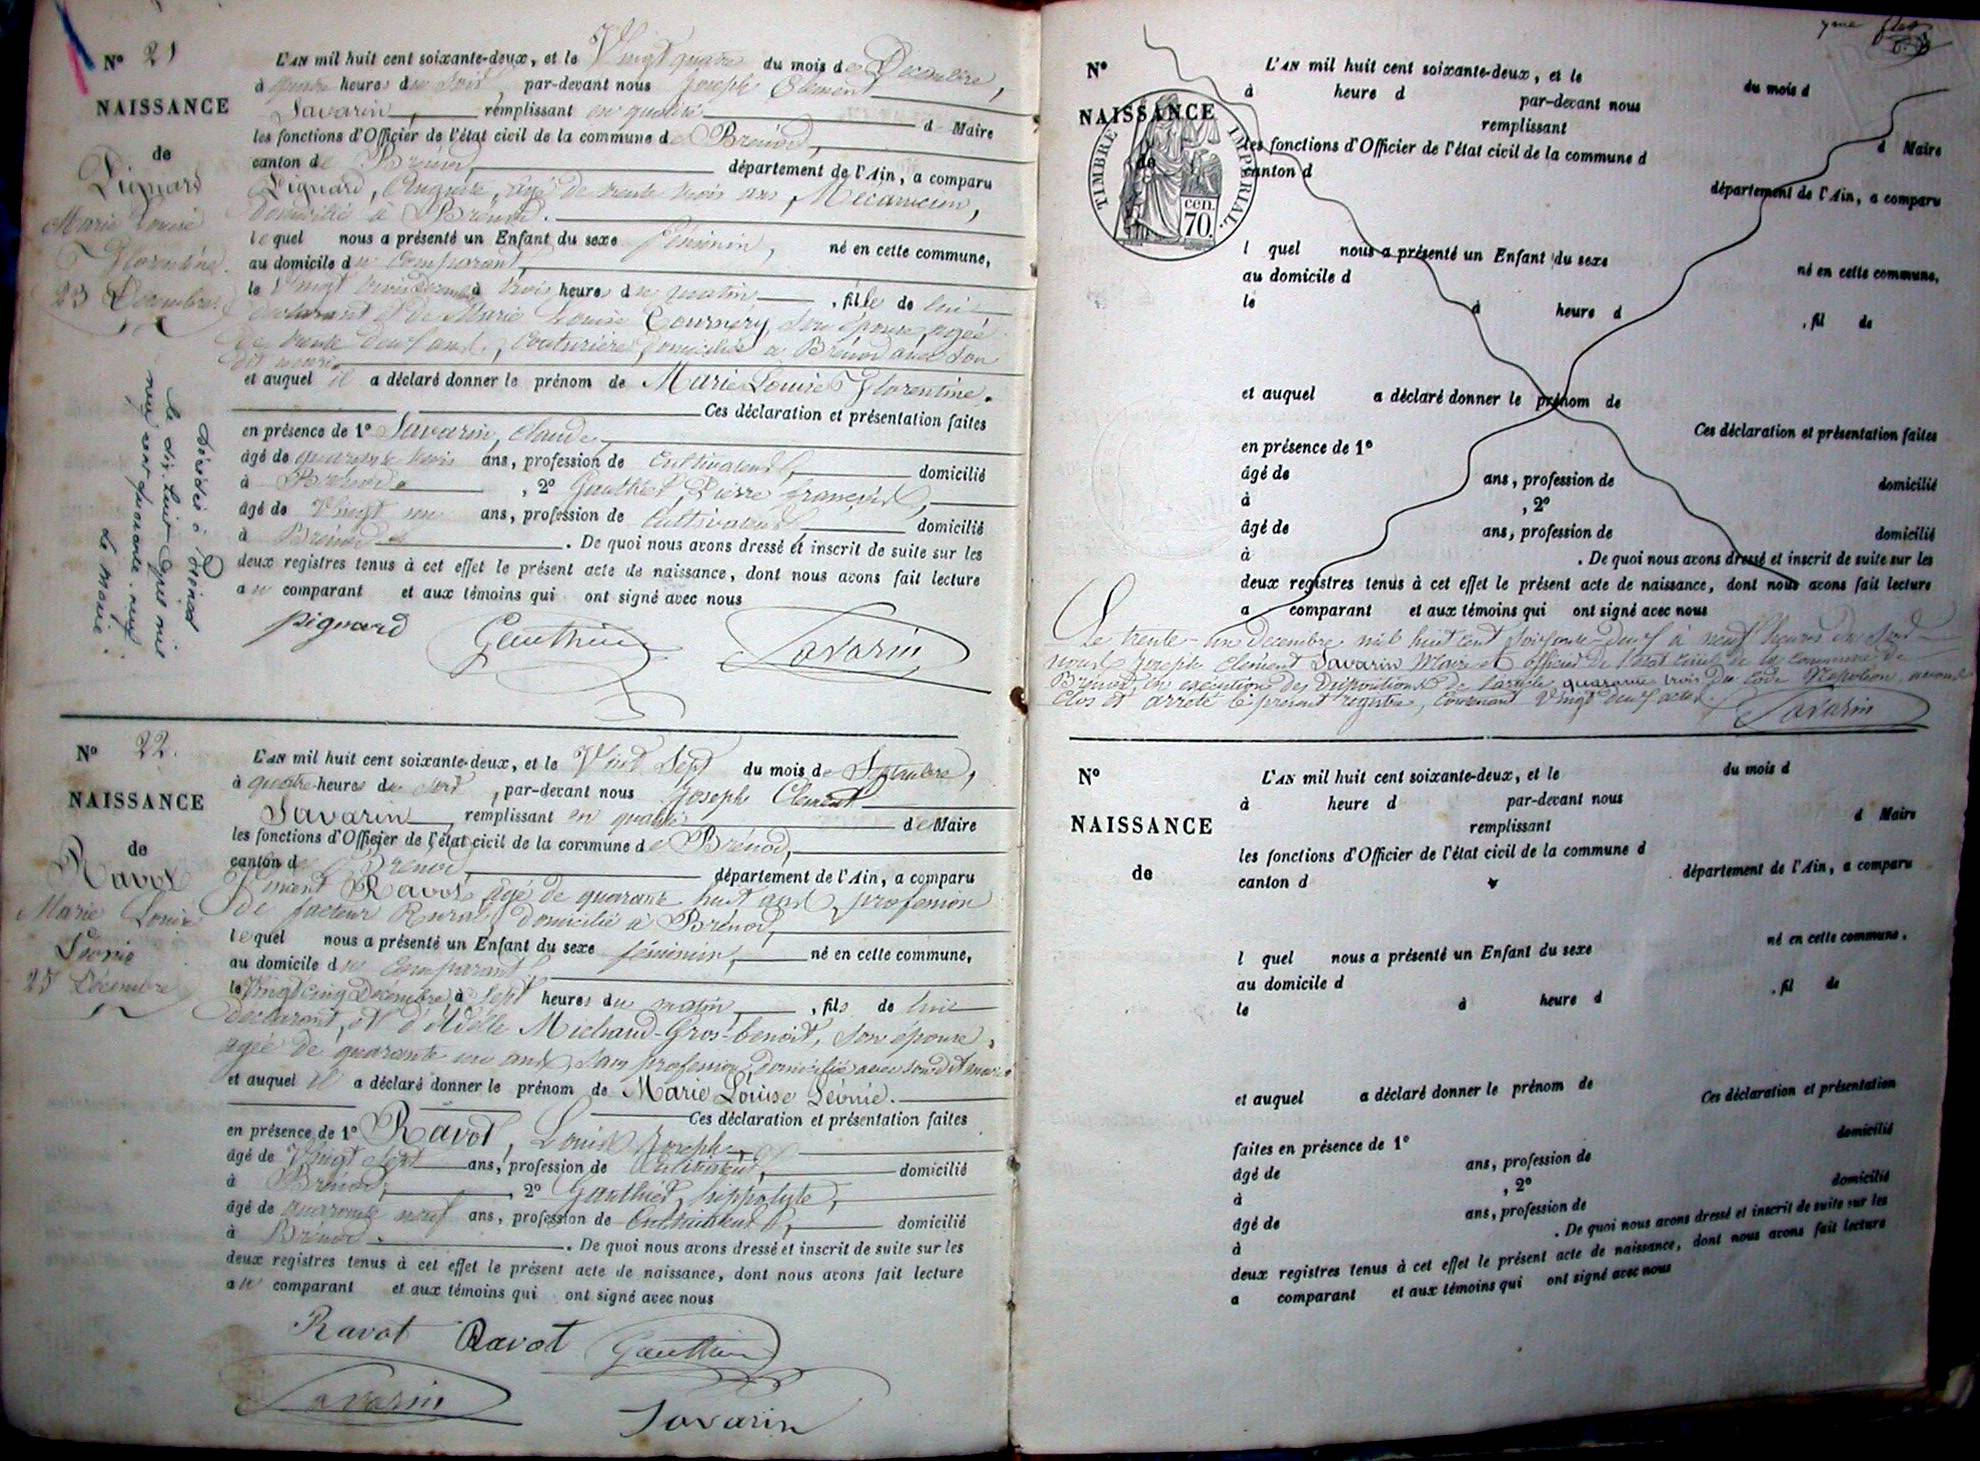 Nº 21
NAISSANCE
de
Pignard
Marie Louise
Florentine.
23 Décembre
L'AN mil huit cent soixante-deux, et le Vingt quatre du mois de Décembre,
à quatre heures du soir, par-devant nous Joseph Clément
Savarin, remplissant en qualité de Maire
les fonctions d'Officier de l'état civil de la commune de Brénod,
canton de Brénod, département de l'Ain, a comparu
Pignard, âgé de trente trois ans, Mécanicien,
domicilié à Brénod.
lequel nous a présenté un Enfant du sexe féminin, né en cette commune,
au domicile du comparant,
le Vingt trois décembre à trois heures du matin, fille de lui
déclarant et de Marie Louise son épouse, agée
de trente deux ans, couturière, domiciliée à Brénod avec son
dit mari
et auquel il a déclaré donner le prénom de Marie Louise Florentine.
Ces déclaration et présentation faites
en présence de 1º Savarin, Claude,
âgé de quarante trois ans, profession de Cultivateur, domicilié
à Brénod, 2º Gauthier, Pierre François,
âgé de Vingt un ans, profession de Cultivateur domicilié
à Brénod. De quoi nous avons dressé et inscrit de suite sur les
deux registres tenus à cet effet le présent acte de naissance, dont nous avons fait lecture
au comparant et aux témoins qui ont signé avec nous
pignard Gauthier Savarin
Décédée à Brénod
le dix huit mil
neuf cent quarante neuf
Le Maire :
Nº 22.
NAISSANCE
de
Ravot
Marie Louise
Léonie
25 Décembre
L'AN mil huit cent soixante-deux, et le Vingt Sept du mois de Septembre,
à quatre heures du soir, par-devant nous Joseph Clément
Savarin, remplissant en qualité de Maire
les fonctions d'Officier de l'état civil de la commune de Brénod,
canton de Brénod, département de l'Ain, a comparu
Vincent Ravot, âgé de quarante huit ans, profession
de facteur Rural, domicilié à Brénod,
lequel nous a présenté un Enfant du sexe féminin, né en cette commune,
au domicile du comparant,
le Vingt cinq Décembre, à Sept heures du matin, fils de lui
déclarant, et d'Adèle Michaud-Gros-benoit, son épouse,
agée de quarante un ans, sans profession, domiciliée avec son dit mari
et auquel il a déclaré donner le prénom de Marie Louise Léonie.
Ces déclaration et présentation faites
en présence de 1º Ravot, Louis Joseph
âgé de Vingt Sept ans, profession de Cultivateur, domicilié
à Brénod, 2º Gauthier, hippolyte,
âgé de quarante neuf ans, profession de Cultivateur, domicilié
à Brénod. De quoi nous avons dressé et inscrit de suite sur les
deux registres tenus à cet effet le présent acte de naissance, dont nous avons fait lecture
au comparant et aux témoins qui ont signé avec nous
Ravot Ravot Gauthier
Savarin Savarin
Nº
NAISSANCE
de
TIMBRE IMPÉRIAL.
70. cen.
L'AN mil huit cent soixante-deux, et le du mois d
à heure d par-devant nous
remplissant d Maire
les fonctions d'Officier de l'état civil de la commune d
canton d département de l'Ain, a comparu
l quel nous a présenté un Enfant du sexe né en cette commune,
au domicile d
le à heure d , fil de
et auquel a déclaré donner le prénom de
Ces déclaration et présentation faites
en présence de 1º
âgé de ans, profession de domicilié
à , 2º
âgé de ans, profession de domicilié
à . De quoi nous avons dressé et inscrit de suite sur les
deux registres tenus à cet effet le présent acte de naissance, dont nous avons fait lecture
a comparant et aux témoins qui ont signé avec nous
Le trente-un décembre mil huit cent soixante-deux à neuf heures du soir
nous Joseph Clément Savarin Maire et officier de l'état civil de la commune de
Brénod, en exécution des dispositions de l'article quarante trois du code Napoléon, avons
clos et arrêté le présent registre, contenant Vingt deux actes
Savarin
Nº
NAISSANCE
de
L'AN mil huit cent soixante-deux, et le du mois d
à heure d par-devant nous
remplissant d Maire
les fonctions d'Officier de l'état civil de la commune d
canton d département de l'Ain, a comparu
l quel nous a présenté un Enfant du sexe né en cette commune,
au domicile d
le à heure d , fil de
et auquel a déclaré donner le prénom de
Ces déclaration et présentation
faites en présence de 1º
âgé de ans, profession de domicilié
à , 2º
âgé de ans, profession de domicilié
à . De quoi nous avons dressé et inscrit de suite sur les
deux registres tenus à cet effet le présent acte de naissance, dont nous avons fait lecture
a comparant et aux témoins qui ont signé avec nous